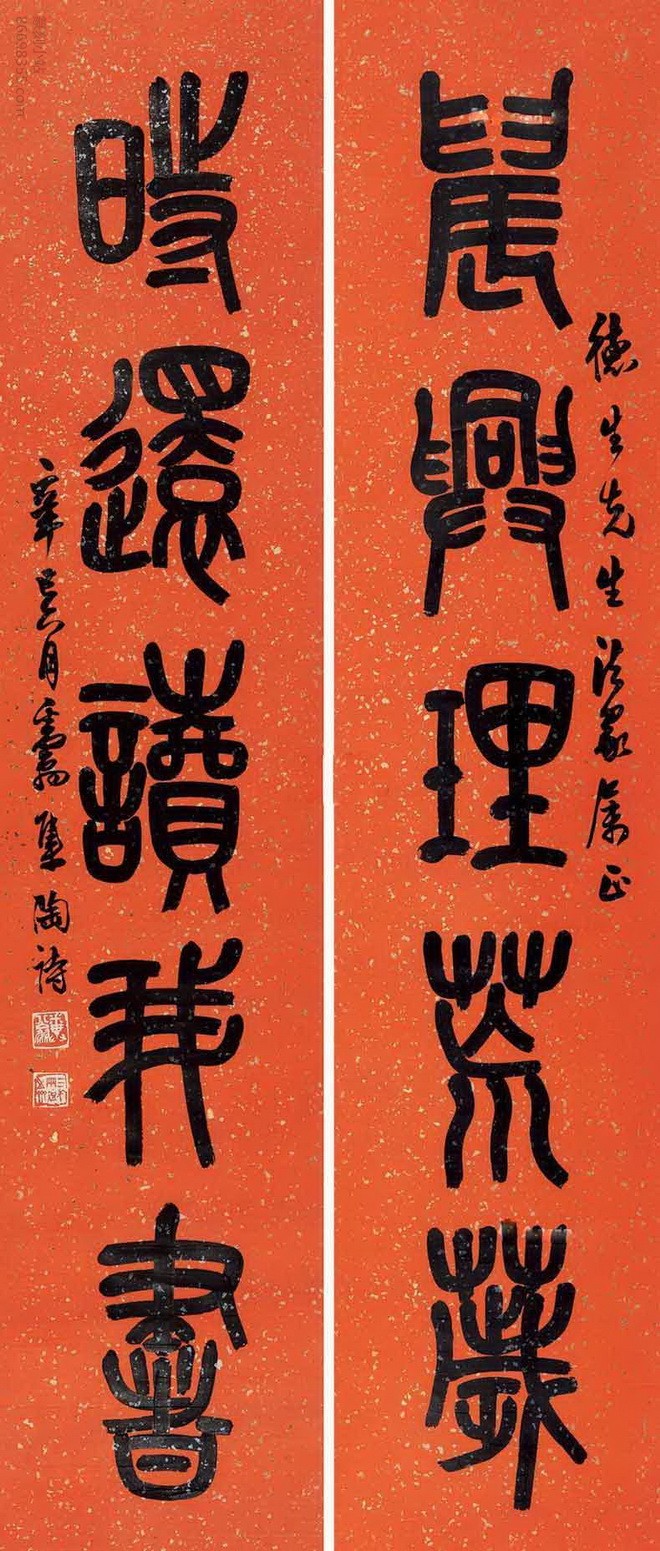 德生先生法家属正
晨興理荒薉
時還讀我書
辛巳六月 集陶詩